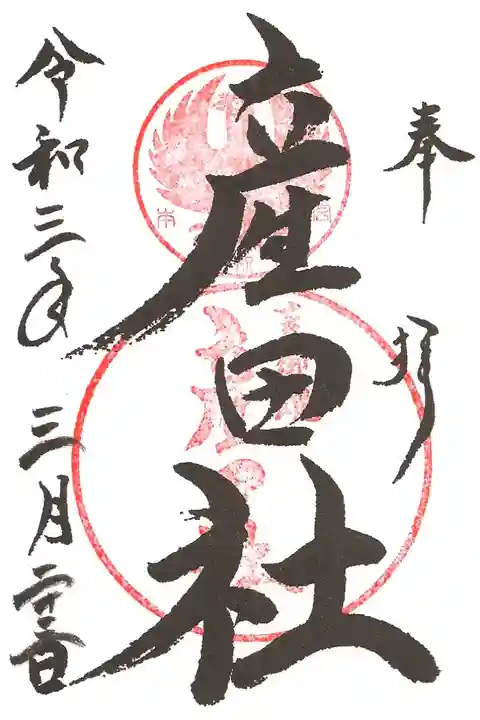 奉拝
産田社
令和三年三月二十三日